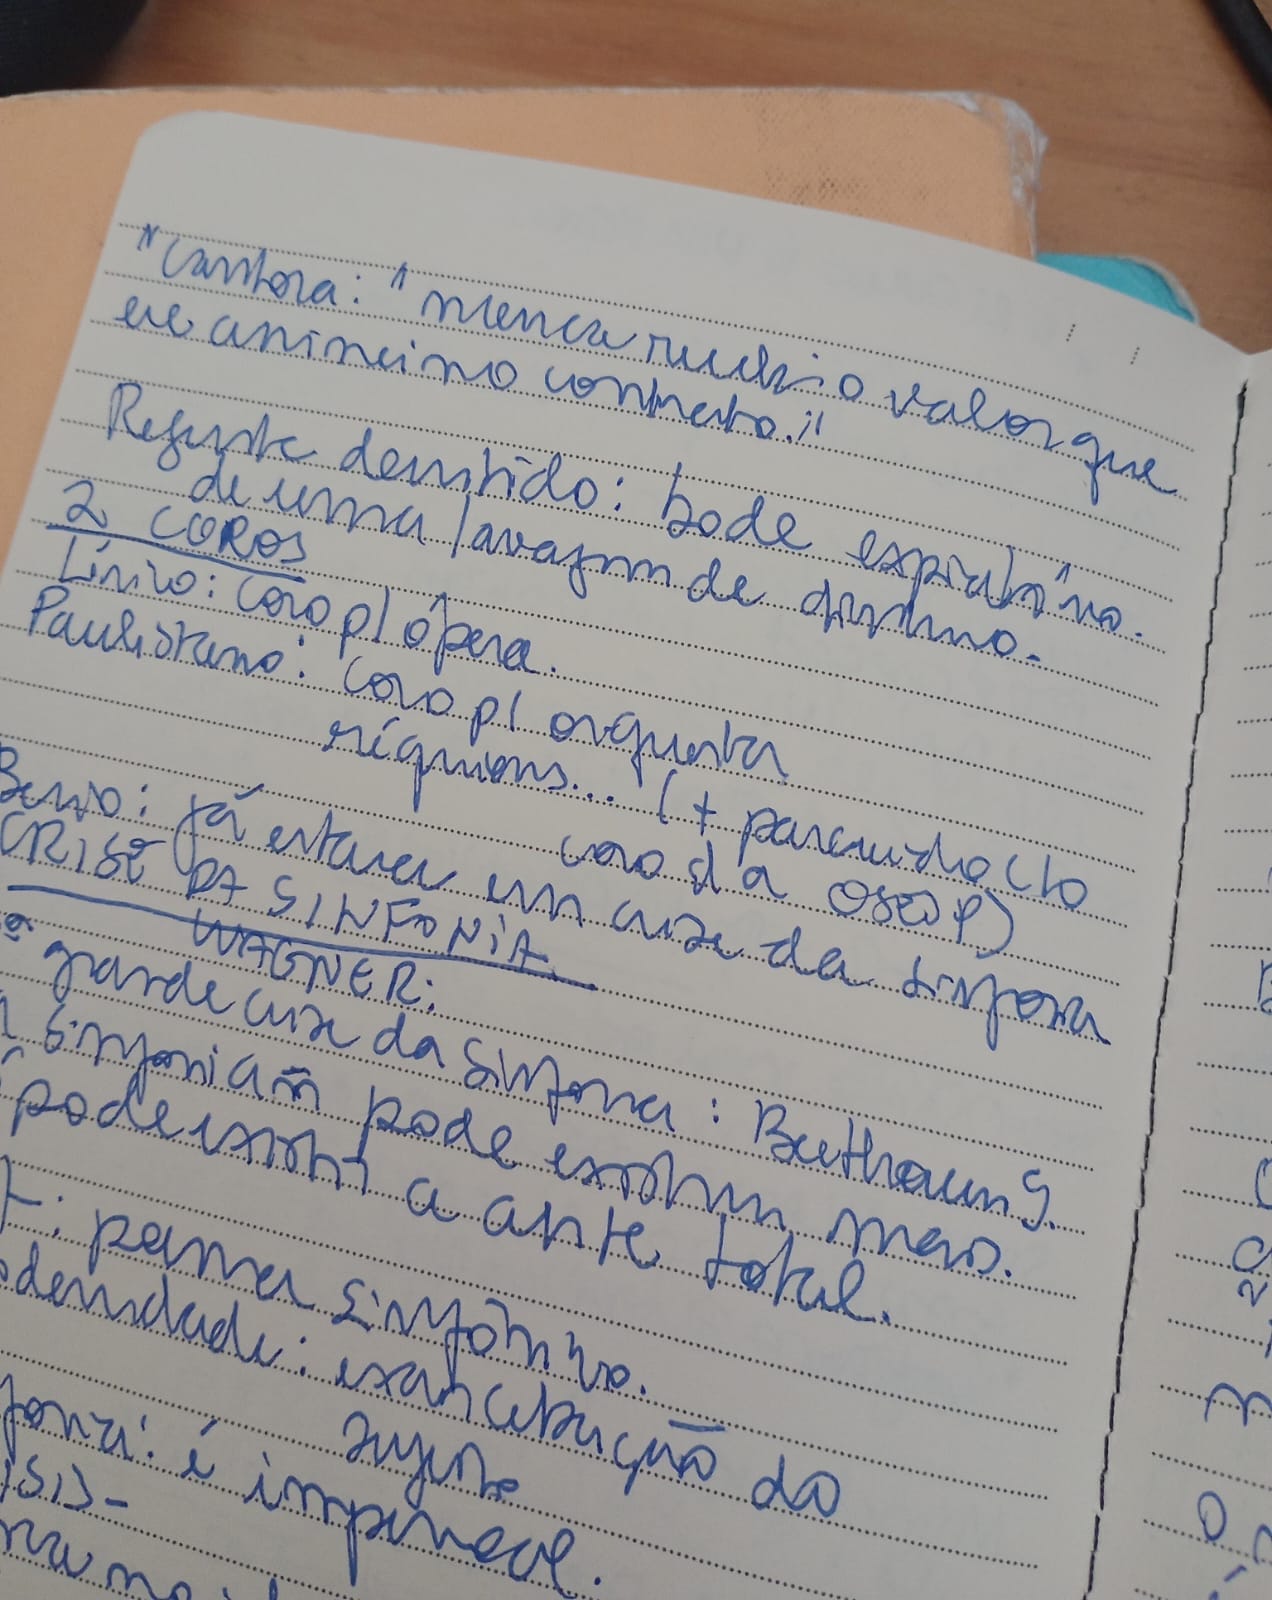 "Cantora: "nunca recebi o valor que
eu assinei no contrato."
Regente demitido: bode expiatório
de uma lavagem de dinheiro.
2 COROS
Lírico: coro p/ ópera.
Paulistano: coro p/ orquestra
réquiens... (+ parecido c/o
coro da OSESP)
Berio: já estava em crise da sinfonia
CRISE DA SINFONIA
WAGNER:
grande crise da sinfonia: Beethoven 9.
A sinfonia ñ pode existir mais.
Só pode existir a arte total.
poema sinfônico.
exacerbação do
sujeito
é impossível.